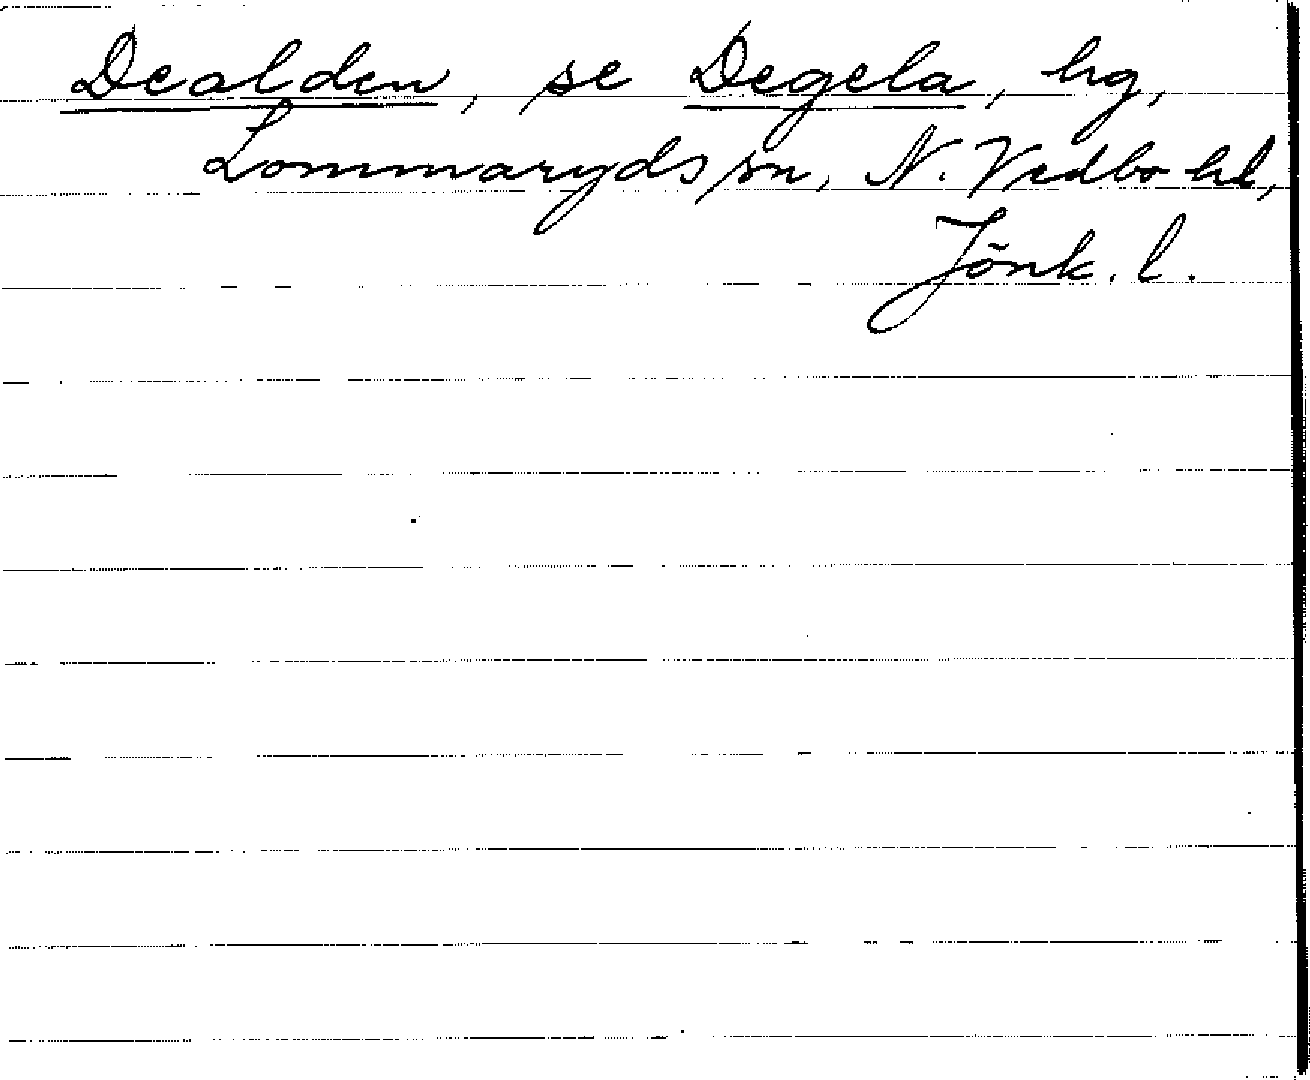 Dealden, se Degela, hg,
Lommaryds sn, N. Vedbo hd,
Jönk. l.